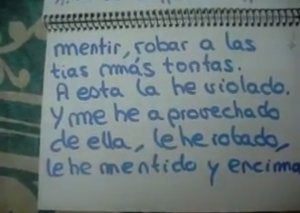 mentir, robar a las
tias más tontas.
A esta la he violado.
Y me he aprovechado
de ella, le he robado,
le he mentido y encima